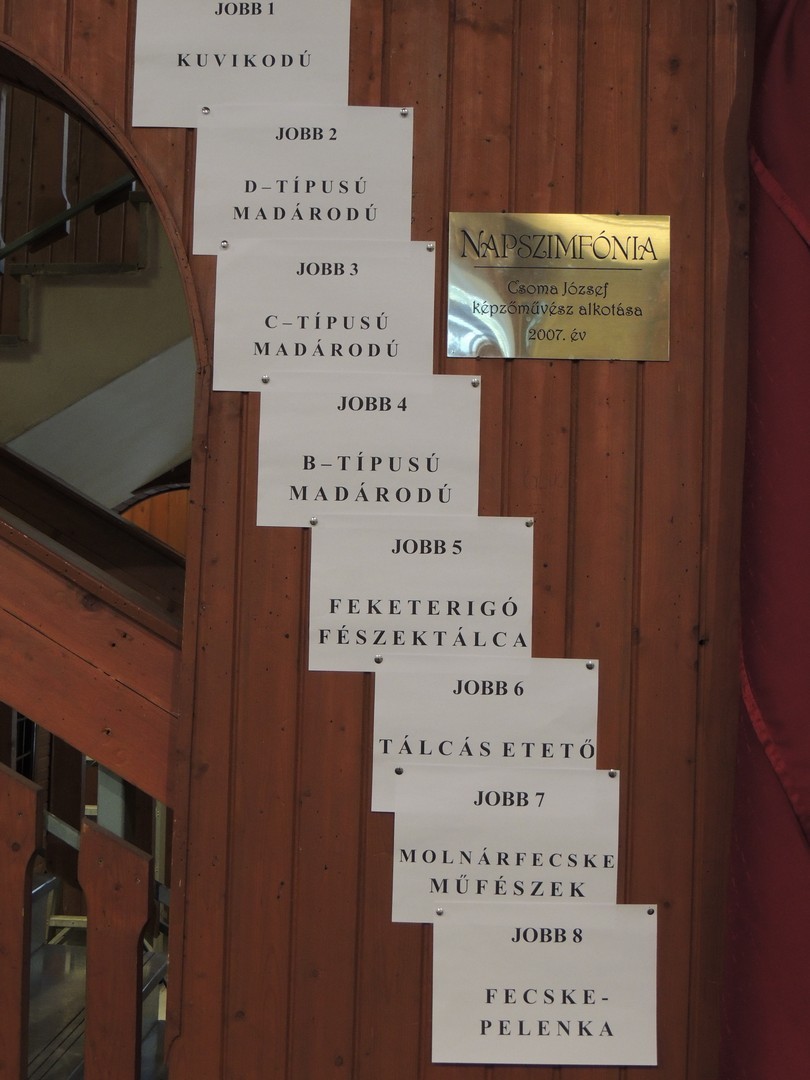 JOBB 1
KUVIKODÚ
JOBB 2
D–TÍPUSÚ
MADÁRODÚ
JOBB 3
C–TÍPUSÚ
MADÁRODÚ
JOBB 4
B–TÍPUSÚ
MADÁRODÚ
JOBB 5
FEKETERIGÓ
FÉSZEKTÁLCA
JOBB 6
TÁLCÁS ETETŐ
JOBB 7
MOLNÁRFECSKE
MŰFÉSZEK
JOBB 8
FECSKE-
PELENKA
NAPSZIMFÓNIA
Csoma József
képzőművész alkotása
2007. év